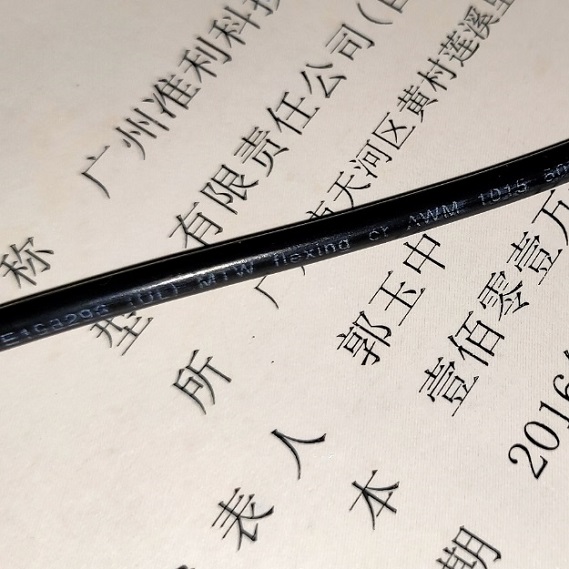 称 广州准利科技
型 有限责任公司(
所 广 天河区黄村莲溪
表人 郭玉中
本 壹佰零壹万
期 2016
(UL) MTW flexing or AWM 1015